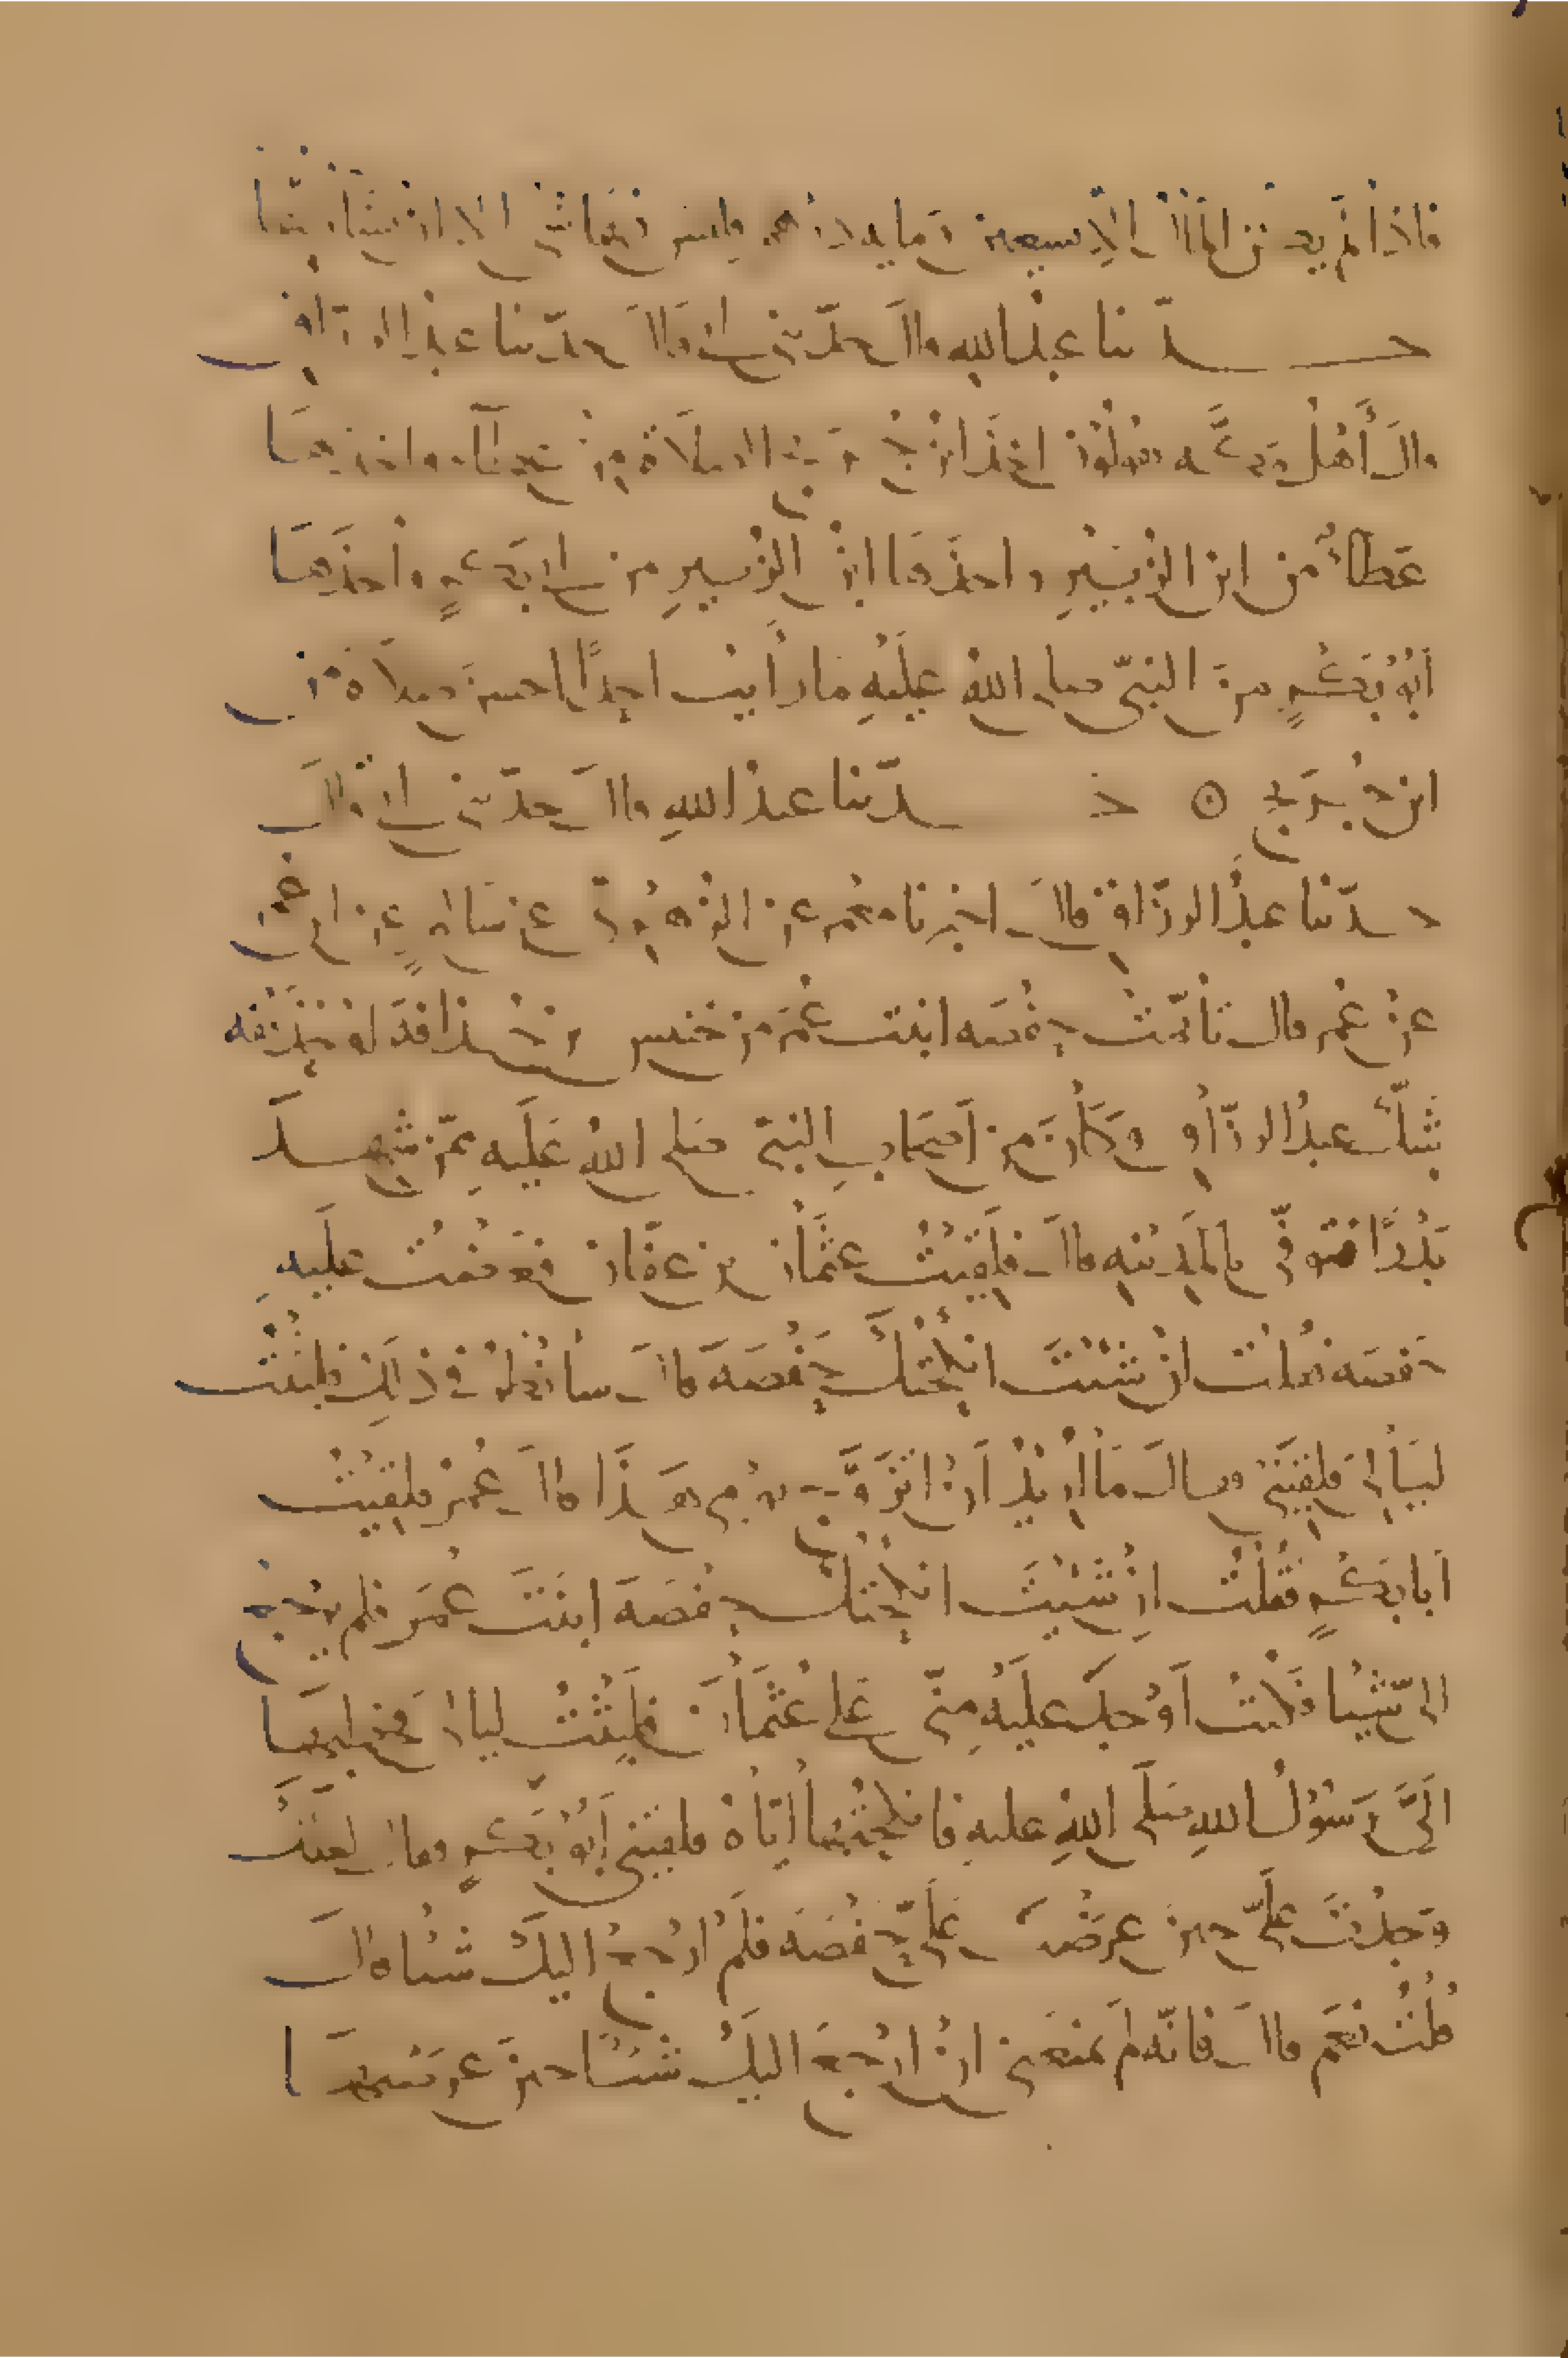 فاذا لم يكن المال الا تسعين ومايه درهم فليس فيها شي الا ان يشا ربها
حدّثنا عبدُ الله قالَ حدّثني ابي قالَ حدّثنا عبدُ الرزّاقِ
قالَ أَهْلُ مَكَّه يقولُونَ اخَذَ ابنُ جُرَيجٍ الصلَاةَ مِن عطآءٍ واخذها
عَطاءٌ من ابن الزُّبَيْرِ واخذَهَا ابنُ الزُّبيرِ من ابى بَكرٍ واخذَها
اَبُو بَكْرٍ مِنَ النبيّ صلى اللهُ عَلَيْهِ مَا رأيتُ احدًا احسنَ صلاةً من
ابن جُرَيجٍ ⊙ حدّثنا عبدُ اللهِ قالَ حدّثني ابى قالَ
حدّثنا عبدُ الرزّاقِ قالَ اخبرنا معمر عن الزُّهْرِيّ عن سَالِمٍ عن ابن عُمَر
عن عُمر قال تاَيّمتْ حفْصَه ابنت عُمَرَ من خنيس بن حُذافَة او حُذَيْفه
شكّ عبدُ الرزّاقِ وَكَانَ من اَصْحَابِ النبيّ صَلى اللهُ عَلَيه مِمّن شهِدَ
بَدْرًا فتوفّي بالمَدِينهِ قالَ فلَقِيتُ عثمَانَ بن عفّان فعَرَضْتُ عليهِ
حفصه فقلت ان شئْتَ انكَحْتُكَ حَفْصَةَ قالَ سأنظُرُ في ذَلِكَ فلبثتُ
لَيَالِىَ فلقِيَنِى فقالَ مَا أُرِيدُ اَنْ اتَزَوَّجَ يَوْمِى هَذَا قالَ عُمَرُ فلقِيْتُ
اَبا بَكْرٍ فقُلْتُ اِنْ شئْتَ انكَحْتُكَ حفْصَةَ ابنَتَ عُمَرَ فلم يَرْجِع
الىّ شيْئا فكُنتُ اَوْجَدَ عليْهِ مِنّى عَلى عُثمَانَ فلَبِثْتُ ليالىَ فخطبهَا
الَىَّ رَسُوْلُ اللهِ صَلّى اللهُ عليهِ فانكَحْتُهَا إيّاهُ فلقِيَنى اَبُوْ بَكْرٍ فقال لعَلّكَ
وَجَدْتَ عَلَىّ حينَ عرَضْتَ عَلَىّ حَفْصَةَ فلَمْ ارْجِعْ اليكَ شَيْئا قالَ
قُلْتُ نعَم قالَ فانّه لم يَمنَعْني انْ ارْجِعَ اليكَ شيئًا حينَ عَرَضتهَا